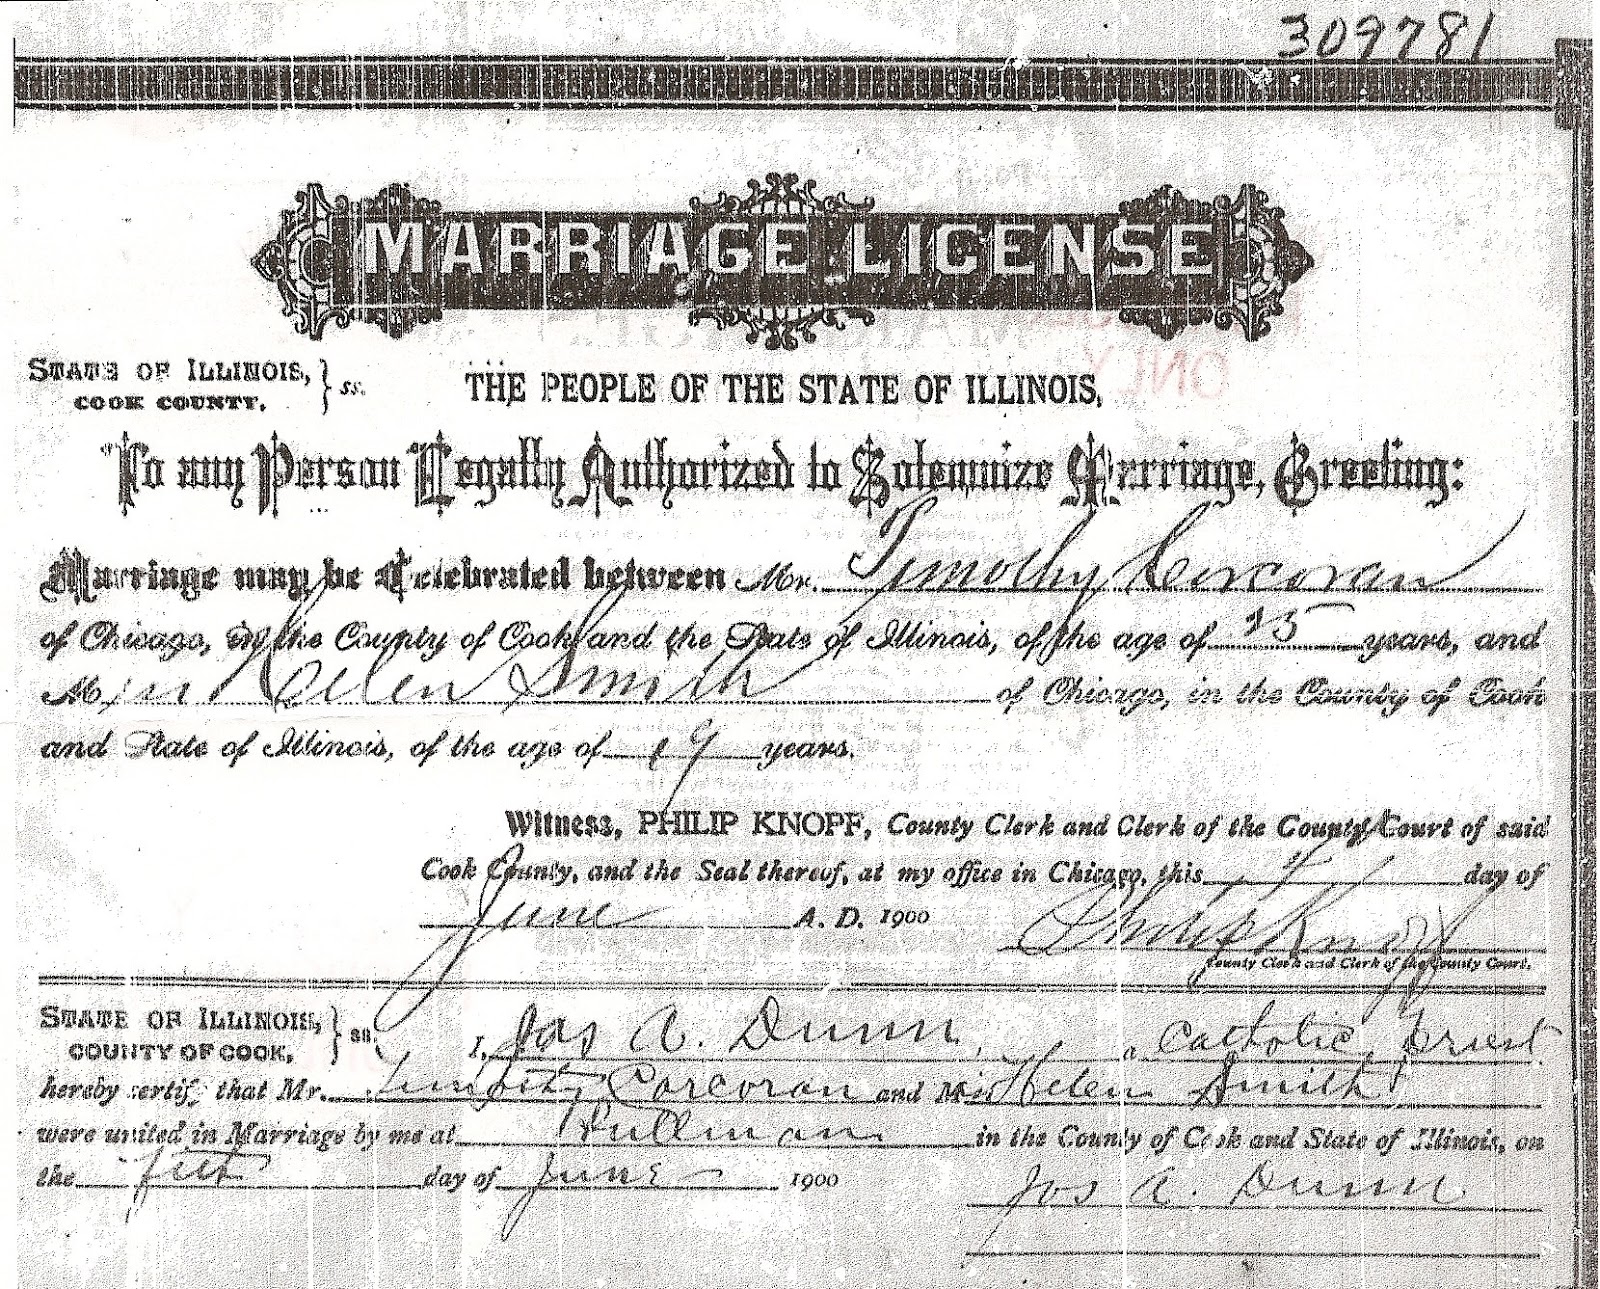 309781
MARRIAGE LICENSE
STATE OF ILLINOIS, } ss. THE PEOPLE OF THE STATE OF ILLINOIS,
COOK COUNTY.
To any Person Legally Authorized to Solemnize Marriage, Greeting:
Marriage may be Celebrated between Mr. Timothy Corcoran
of Chicago, in the County of Cook and the State of Illinois, of the age of 25 years, and
Miss Ellen Smith of Chicago, in the County of Cook
and State of Illinois, of the age of 19 years.
Witness, PHILIP KNOPF, County Clerk and Clerk of the County Court of said
Cook County, and the Seal thereof, at my office in Chicago, this 4 day of
June A. D. 1900 Philip Knopf
County Clerk and Clerk of the County Court.
STATE OF ILLINOIS, } ss. I, Jos A. Dunn, a Catholic priest
COUNTY OF COOK,
hereby certify that Mr. Timothy Corcoran and Miss Helen Smith
were united in Marriage by me at Pullman in the County of Cook and State of Illinois, on
the fifth day of June 1900 Jos A. Dunn
ONLY